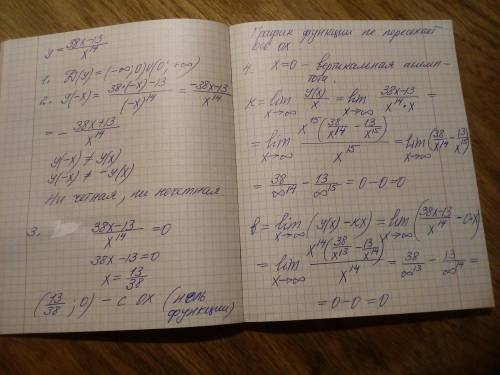 y = (38x-13)/x^14
1. D(y) = (-∞; 0)∪(0; +∞)
2. y(-x) = (38·(-x)-13)/(-x)^14 = (-38x-13)/x^14
= - (38x+13)/x^14
y(-x) ≠ y(x)
y(-x) ≠ -y(x)
Ни четная, ни нечетная
3. (38x-13)/x^14 = 0
38x-13=0
x = 13/38
(13/38; 0) - с OX (ноль функции)
График функции не пересекает
ось OX
4. x=0 - вертикальная асимп-
тота
K = lim x→∞ y(x)/x = lim x→∞ (38x-13)/(x^14·x) =
= lim x→∞ x^15(38/x^14 - 13/x^15)/x^15 = lim x→∞ (38/x^14 - 13/x^15)
= 38/∞^14 - 13/∞^15 = 0-0=0
b = lim x→∞ (y(x)-kx) = lim x→∞ ((38x-13)/x^14 - 0·x)
= lim x→∞ x^14(38/x^13 - 13/x^14)/x^14 = 38/∞^13 - 13/∞^14 =
= 0-0 = 0